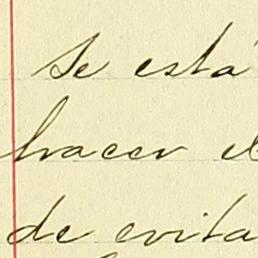 Se está
hacer el
de evita